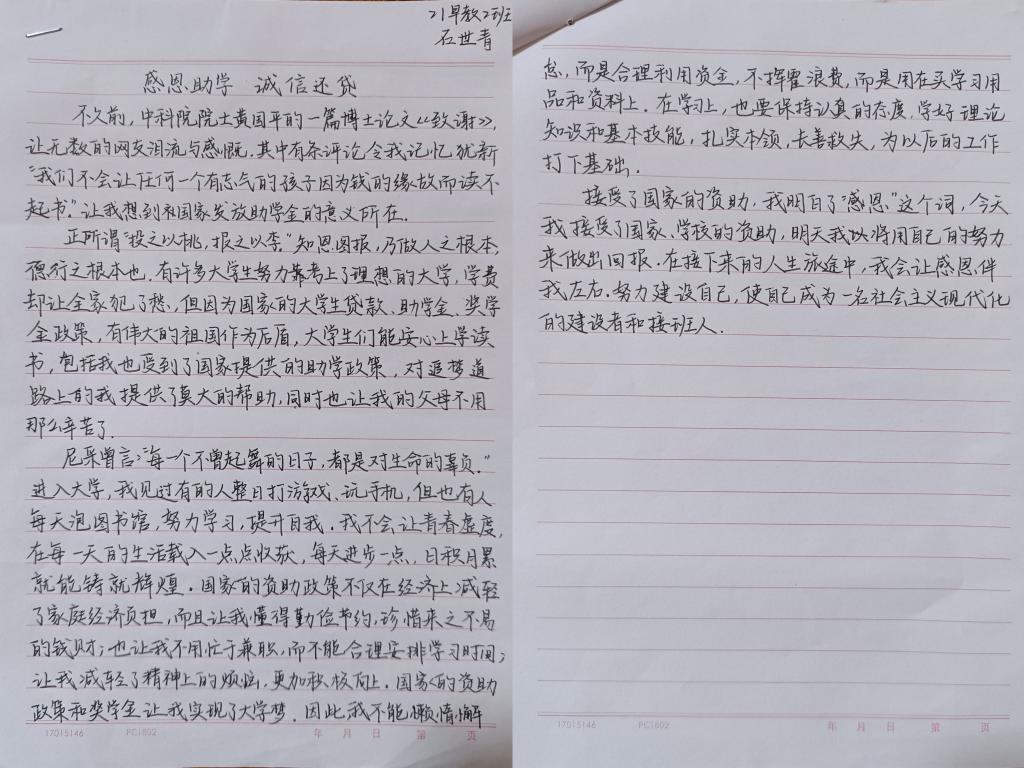 21早教2班
石世青
感恩助学 诚信还贷
不久前，中科院院士黄国平的一篇博士论文《致谢》，
让无数的网友泪流与感慨，其中有条评论令我记忆犹新
“我们不会让任何一个有志气的孩子因为钱的缘故而读不
起书。”让我想到和国家发放助学金的意义所在.
正所谓“投之以桃，报之以李”知恩图报，乃做人之根本，
德行之根本也。有许多大学生努力靠考上了理想的大学，学费
却让全家犯了愁，但因为国家的大学生贷款、助学金、奖学
金政策，有伟大的祖国作为后盾，大学生们能安心上学读
书，包括我也受到了国家提供的助学政策，对追梦道
路上的我提供了莫大的帮助，同时也让我的父母不用
那么辛苦了.
尼采曾言：“每一个不曾起舞的日子，都是对生命的辜负.”
进入大学，我见过有的人整日打游戏、玩手机，但也有人
每天泡图书馆，努力学习，提升自我. 我不会让青春虚度，
在每一天的生活载入一点点收获，每天进步一点，日积月累
就能铸就辉煌. 国家的资助政策不仅在经济上减轻
了家庭经济负担，而且让我懂得勤俭节约，珍惜来之不易
的钱财；也让我不用忙于兼职，而不能合理安排学习时间；
让我减轻了精神上的烦恼，更加积极向上. 国家的资助
政策和奖学金让我实现了大学梦. 因此，我不能懒惰懈
17015146 PC1802 年 月 日 第 页
怠，而是合理利用资金，不挥霍浪费，而是用在买学习用
品和资料上. 在学习上，也要保持认真的态度，学好理论
知识和基本技能，扎实本领，长善救失，为以后的工作
打下基础.
接受了国家的资助，我明白了“感恩”这个词，今天
我接受了国家、学校的资助，明天我以将用自己的努力
来做出回报. 在接下来的人生旅途中，我会让感恩伴
我左右. 努力建设自己，使自己成为一名社会主义现代化
的建设者和接班人.
17015146 PC1802 年 月 日 第 页